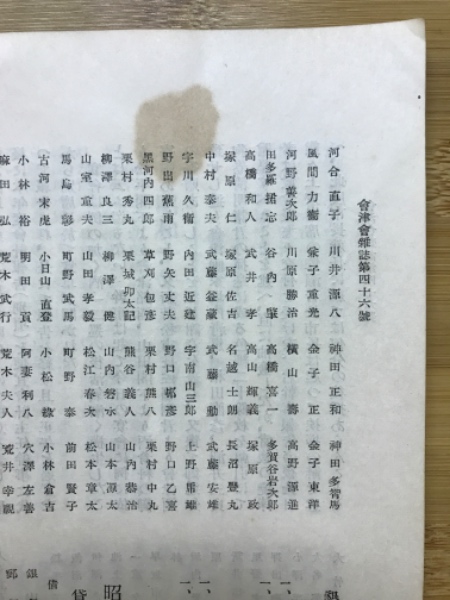 會津會雑誌第四十六號
河合直子 川井源八 神田正和 神田多智馬
風間力衛 金子重光 金子正 金子東洋
河野善次郎 川原勝治 横山壽 高野源進
田多羅捨忘 谷内肇 高橋喜一 多賀谷岩次郎
高橋和人 武井孝 高山輝義 塚原政
塚原仁 塚原佐吉 名越士朗 長沼豊丸
中村泰夫 武藤釜藏 武藤勳 武藤安雄
宇川久衛 内田近建 宇南山三郎 上野專雄
野出蕉雨 野矢丈夫 野口梛彦 野口乙喜
黒河内四郎 草刈包彦 栗村熊八 栗村中丸
栗村秀丸 栗城卯太記 熊谷義人 山内恭治
柳澤良三 柳澤健 山内磐水 山本源太
山室重夫 山田孝毅 松江春次 松本章太
馬島 町野武馬 町野泰 前田賢子
古河末虎 小日山直登 小松緑 小林倉吉
小林裕 明田貢 阿妻利八 穴澤左善
麻田弘 荒木武行 荒木夫人 荒井幸
懇
一、
一、
一、
一、
昭
貸
借
銀
郵